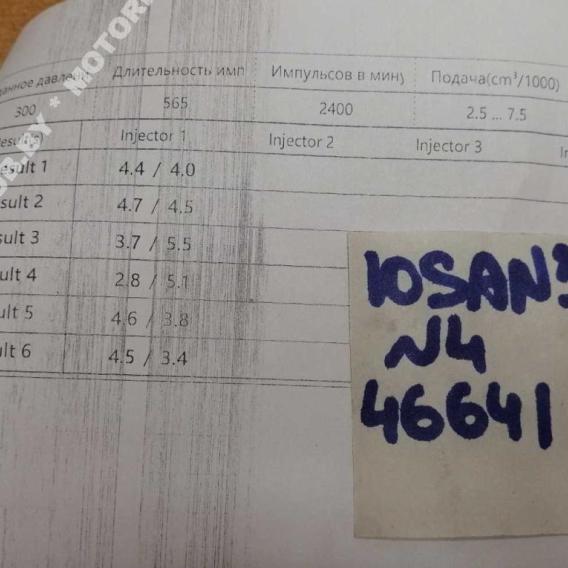 MOTOR
OR.BY * MOTOR
данное давлени Длительность имп Импульсов в мину Подача(cm³/1000)
300 565 2400 2.5 ... 7.5
esults Injector 1 Injector 2 Injector 3 In
esult 1 4.4 / 4.0
sult 2 4.7 / 4.5
sult 3 3.7 / 5.5
ult 4 2.8 / 5.1
ult 5 4.6 / 3.8
ult 6 4.5 / 3.4
10SAN
N4
46641